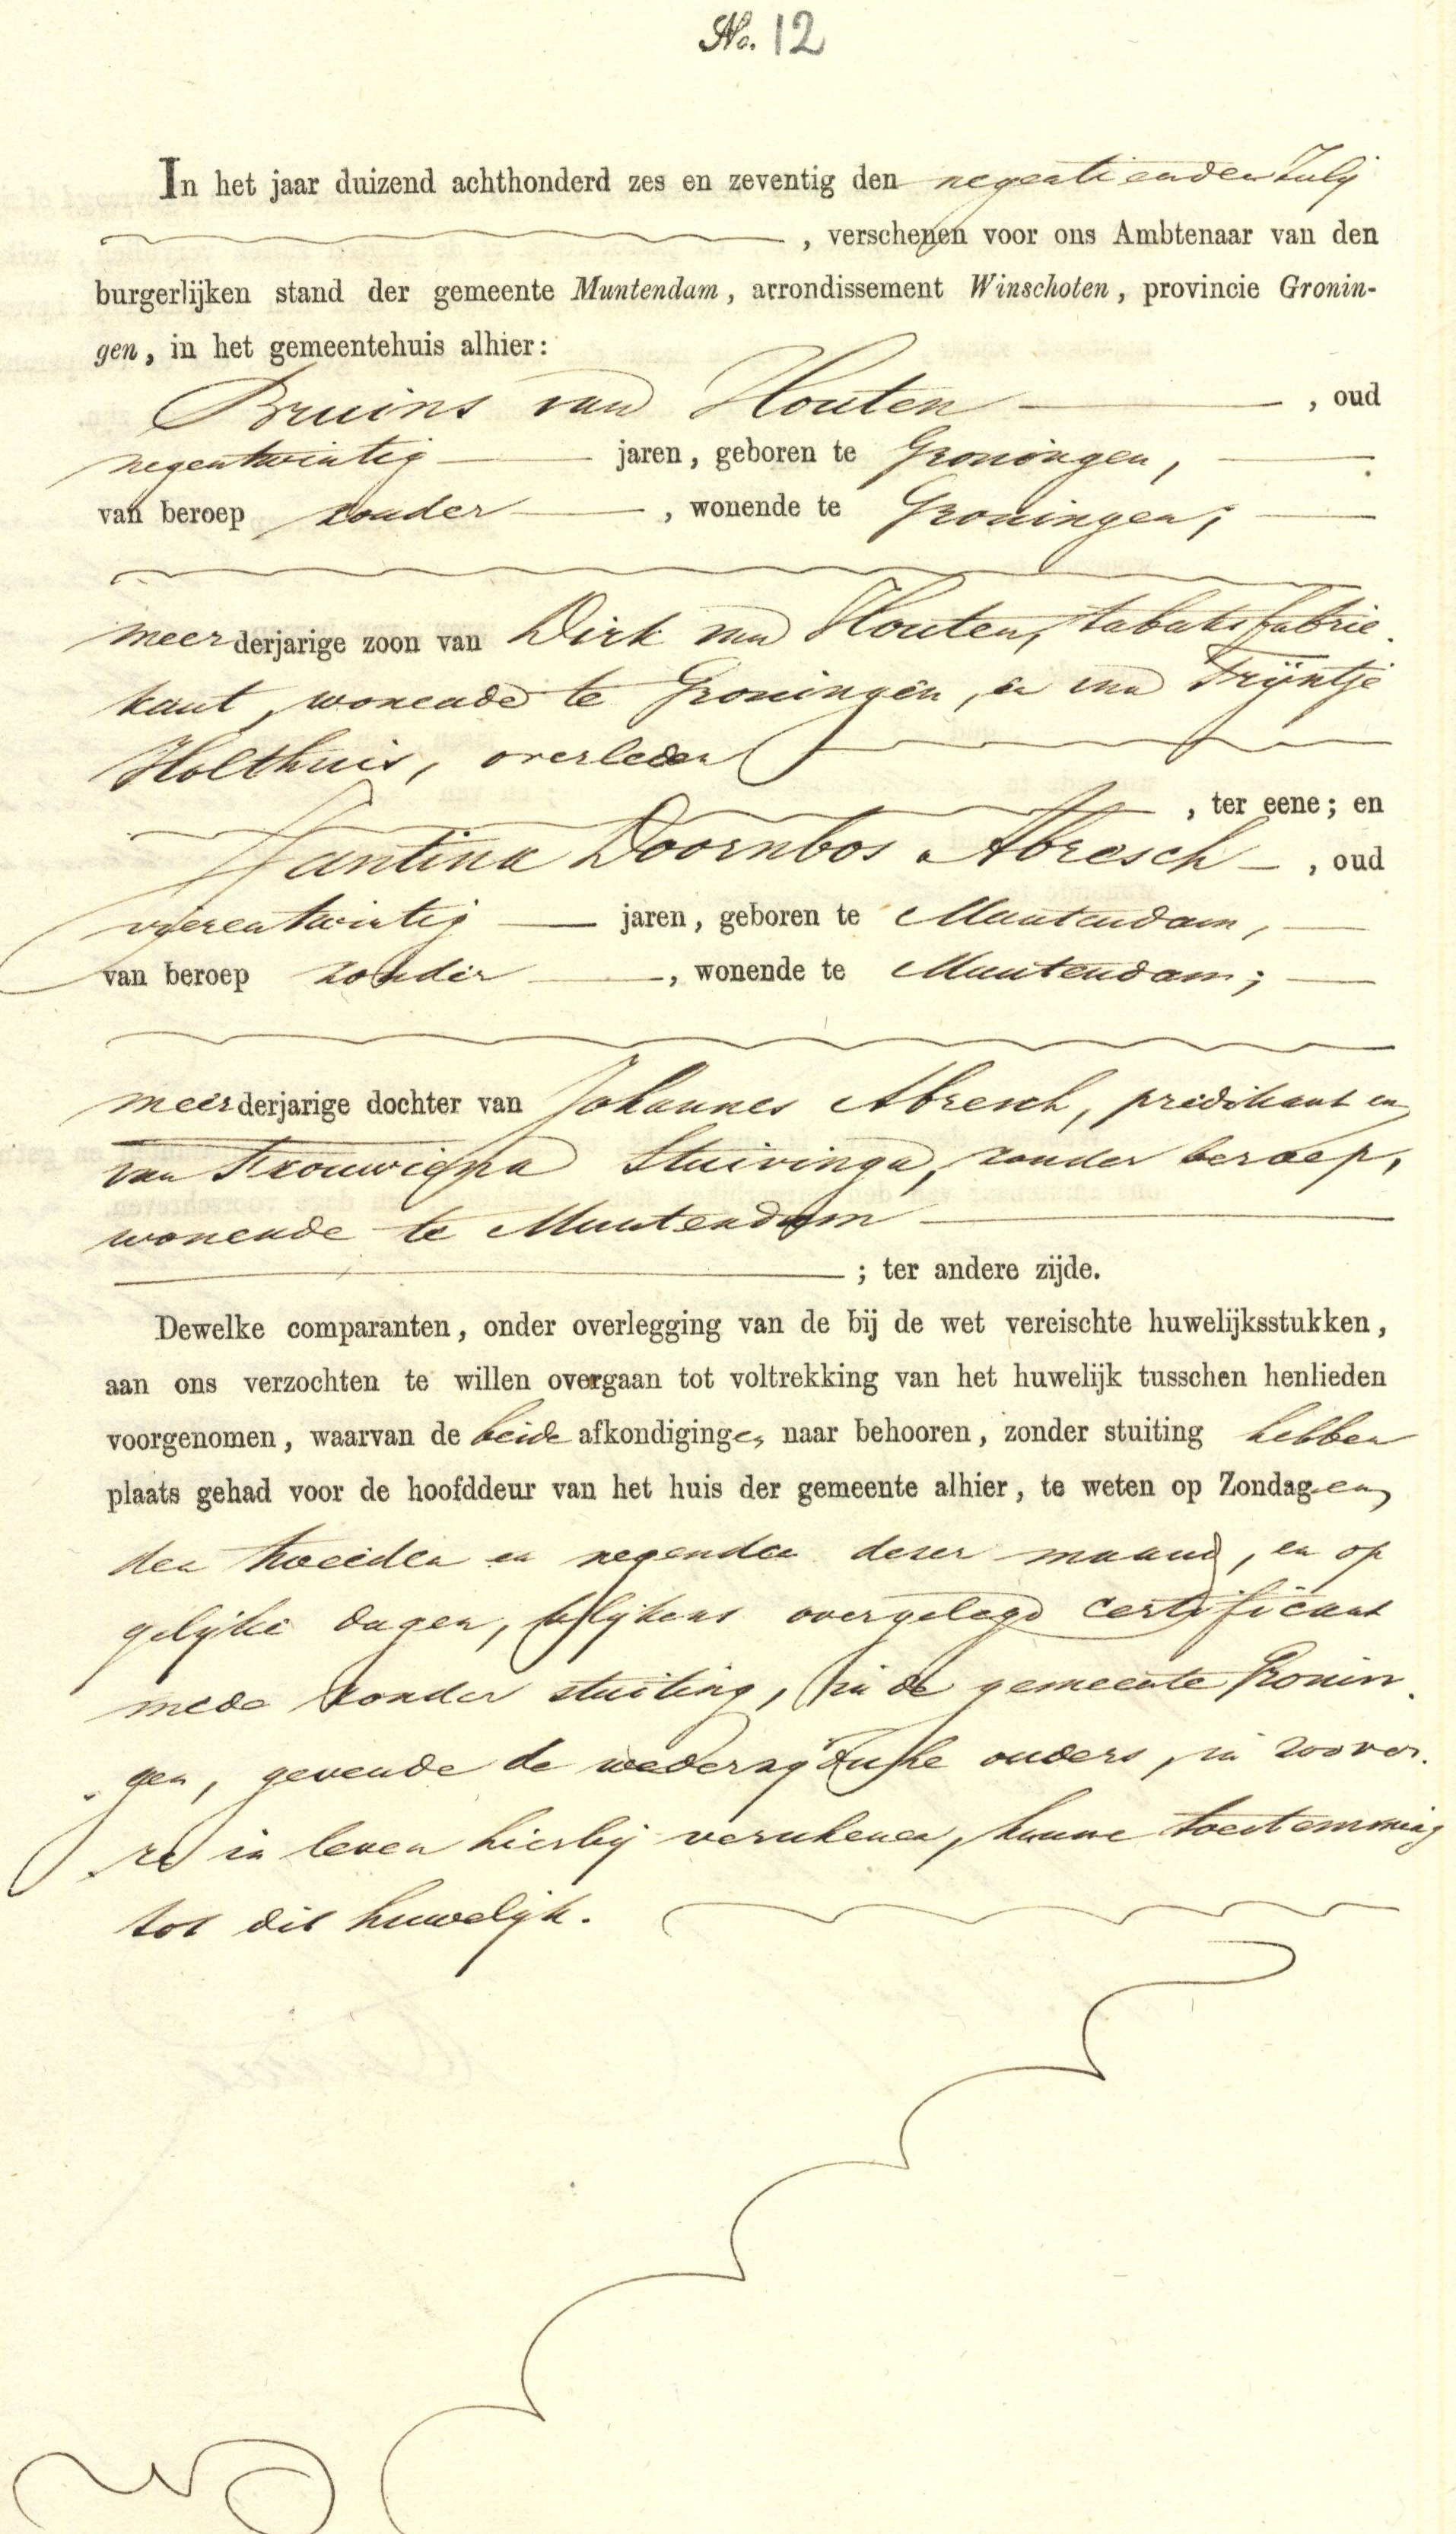 No. 12
In het jaar duizend achthonderd zes en zeventig den negentienden Julij
, verschenen voor ons Ambtenaar van den
burgerlijken stand der gemeente Muntendam, arrondissement Winschoten, provincie Gronin-
gen, in het gemeentehuis alhier:
Bruins van Houten , oud
negentwintig jaren, geboren te Groningen,
van beroep zonder , wonende te Groningen;
meerderjarige zoon van Dirk van Houten, tabaksfabrie-
kant, wonende te Groningen, en van Trijntje
Holthuis, overleden
, ter eene; en
Jantina Doornbos Abresch , oud
vierentwintig jaren, geboren te Muntendam,
van beroep zonder , wonende te Muntendam;
meerderjarige dochter van Johannes Abresch, predikant en
van Trouwiena Stuivinga, zonder beroep,
wonende te Muntendam
; ter andere zijde.
Dewelke comparanten, onder overlegging van de bij de wet vereischte huwelijksstukken,
aan ons verzochten te willen overgaan tot voltrekking van het huwelijk tusschen henlieden
voorgenomen, waarvan de beide afkondigingen naar behooren, zonder stuiting hebben
plaats gehad voor de hoofddeur van het huis der gemeente alhier, te weten op Zondagen
den tweeden en negenden dezer maand, en op
gelijke dagen, blijkens overgelegd certificaat
mede zonder stuiting, in de gemeente Gronin-
gen, gevende de wederzijdsche ouders, in zoover-
re in leven hierbij verschenen, hunne toestemming
tot dit huwelijk.